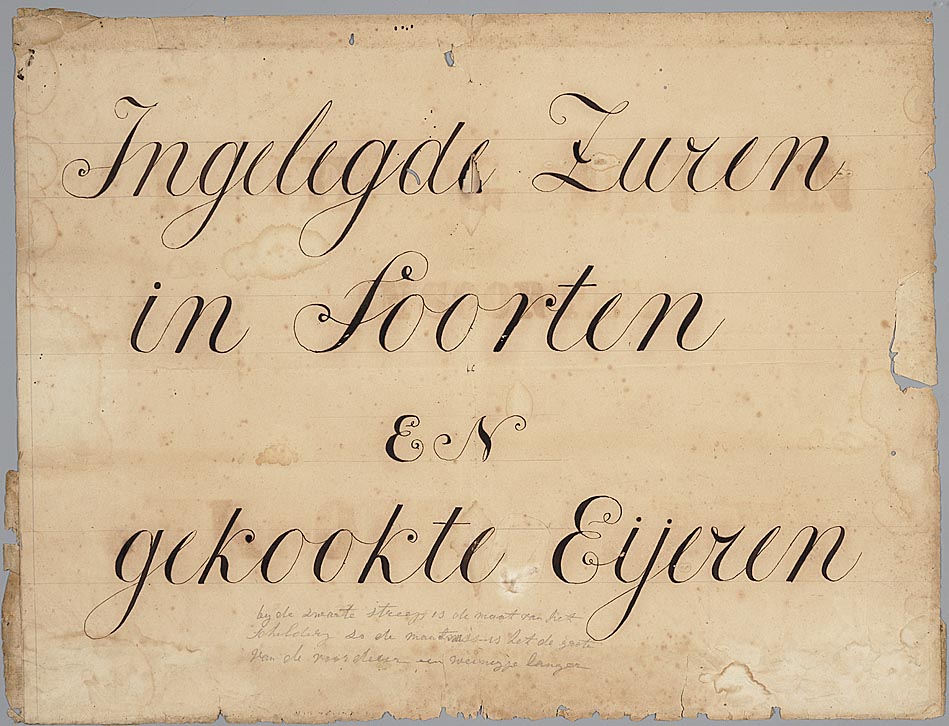 Ingelegde Zuren
in Soorten
EN
gekookte Eijeren
by de zwarte streep is de maat van het
so de is het de
van de voordeur een weinigje langer